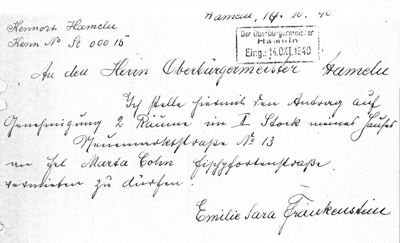 Hameln, 14. 10. 40
Kennort Hameln
Kenn No St 00015
Der Oberbürgermeister
Hameln
Eing.: 14. OKT. 1940
An den Herrn Oberbürgermeister Hameln
Ich stelle hiermit den Antrag auf
Genehmigung 2 Räume im II Stock meines Hauses
Neuemarktstraße No 13
an Frl Marta Cohn Fischpfortenstraße
vermieten zu dürfen.
Emilie Sara Frankenstein